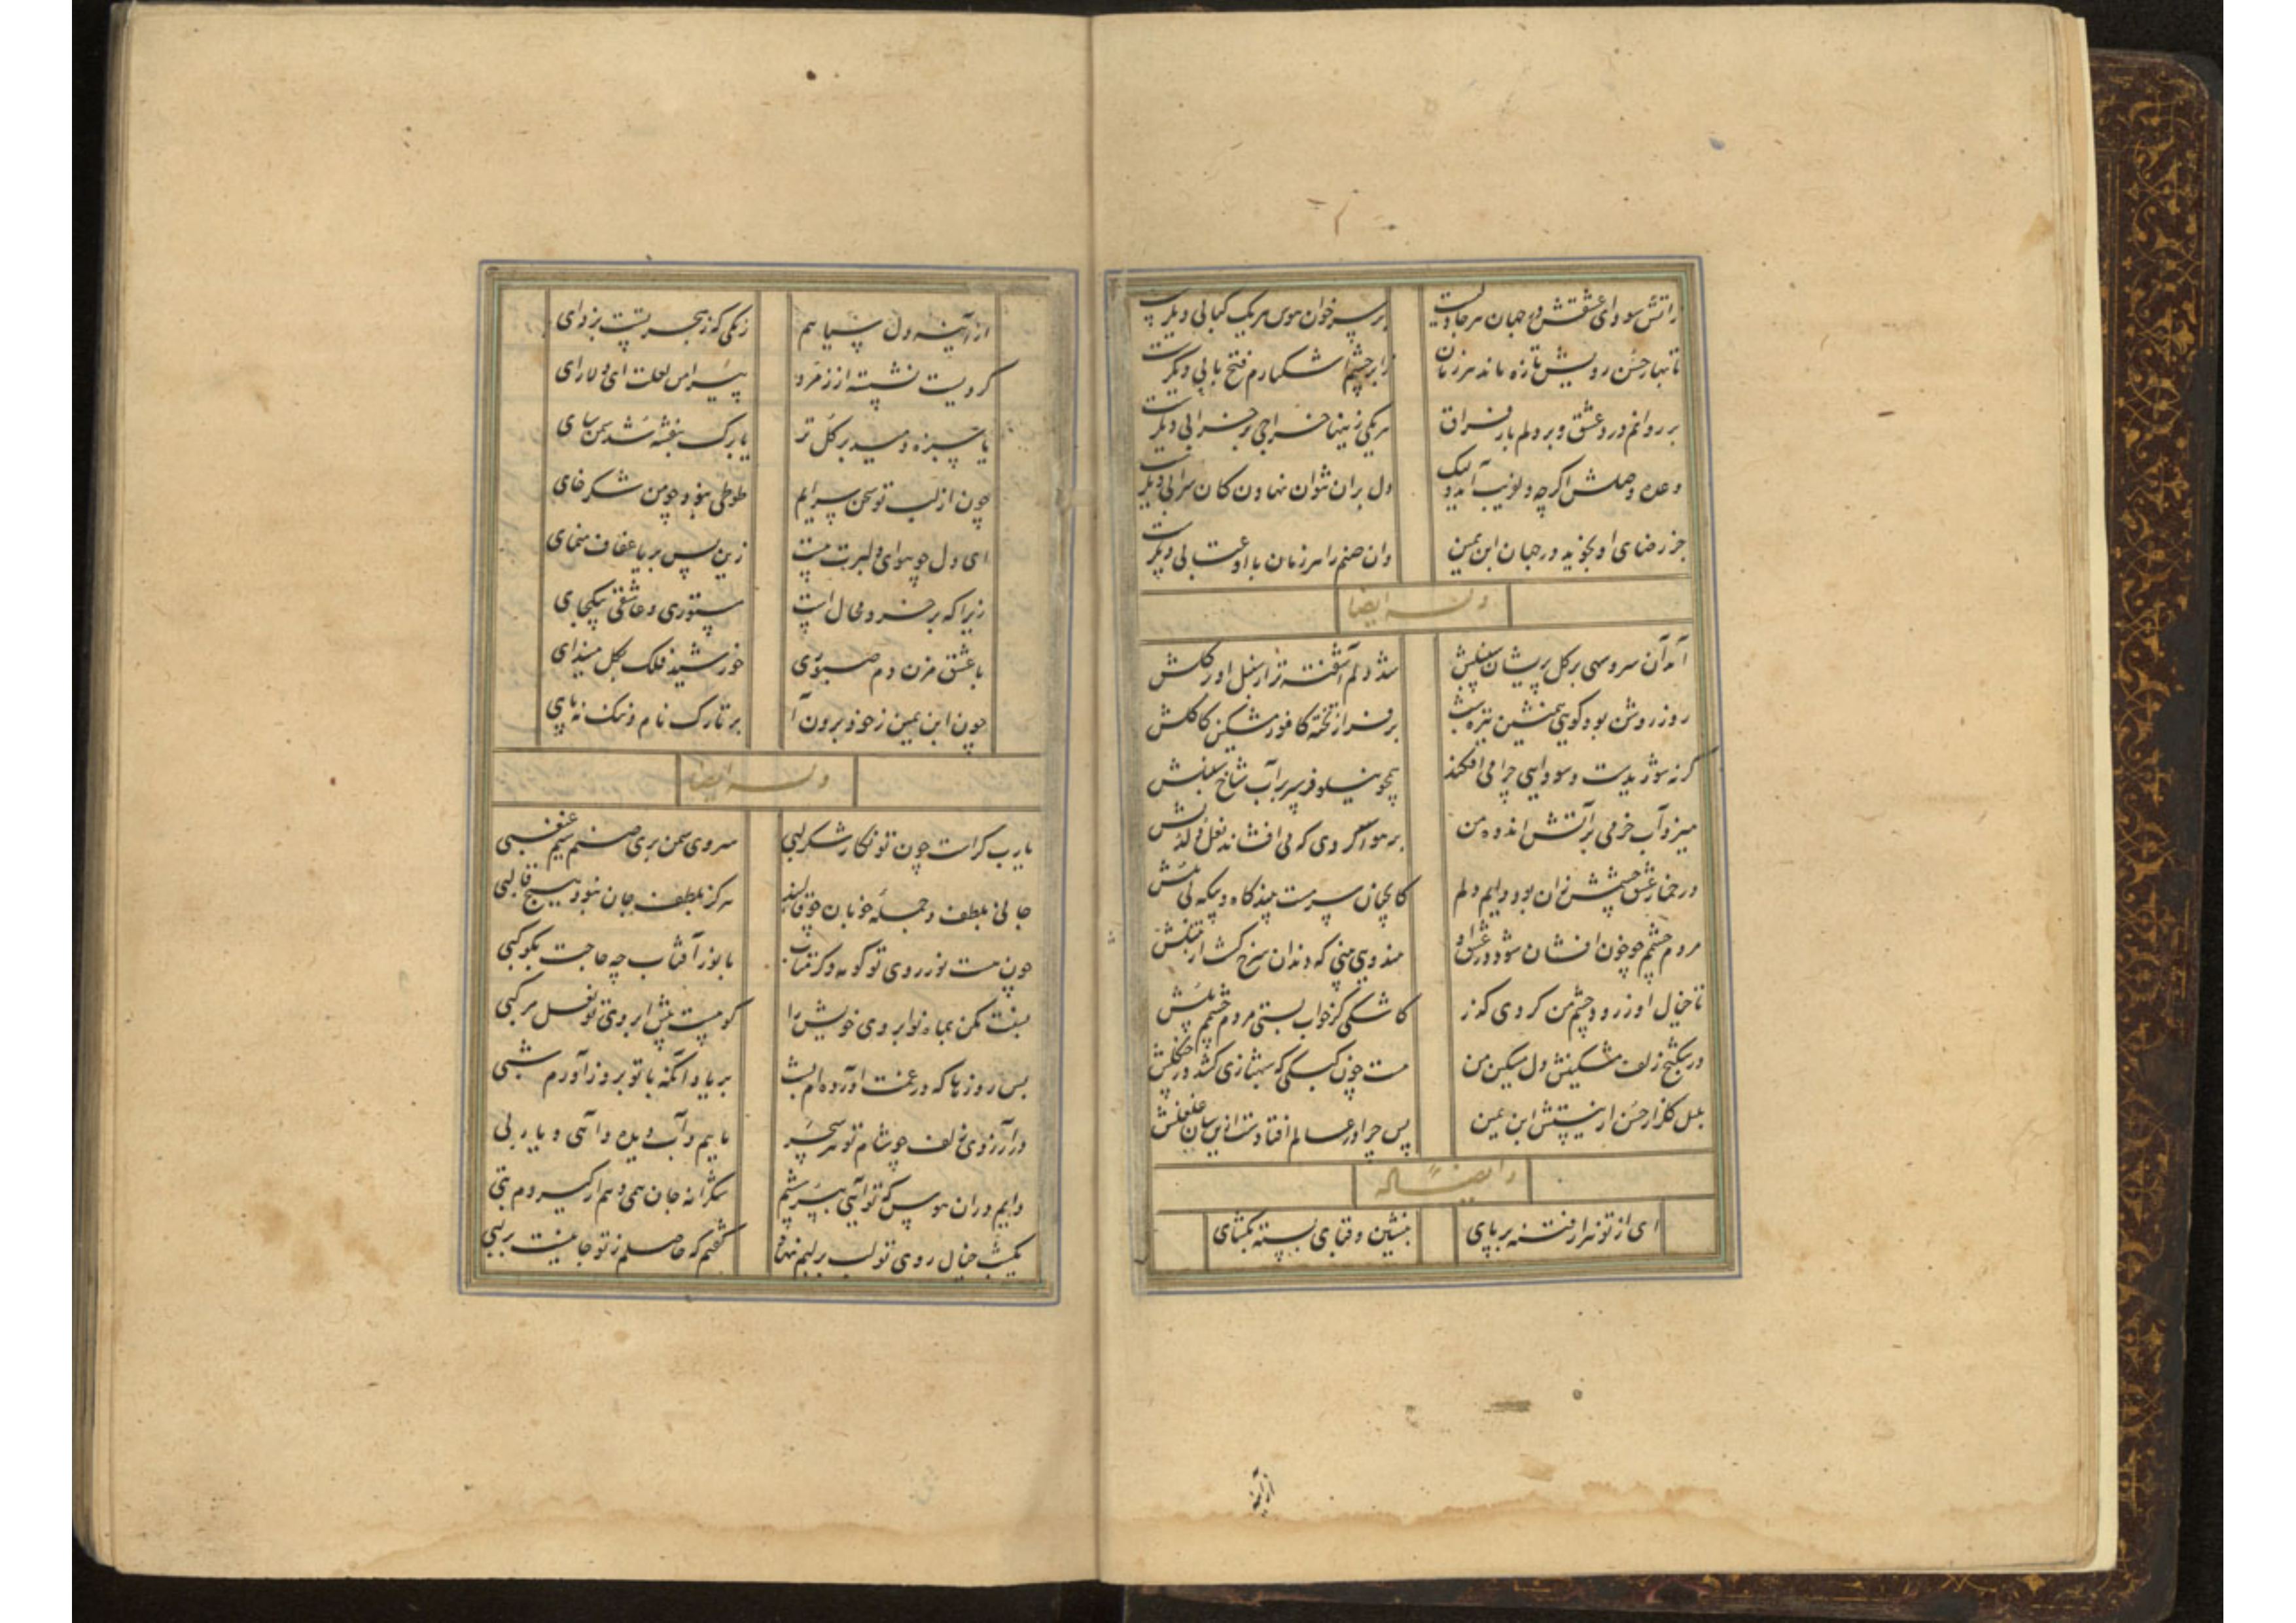 زآتش سودای عشقش در جهان هر جا دلیست
بر سر خوان هوس هر یک کبابی دیگرست
تا بهار حسن رویش تازه ماند هر زمان
زابر چشم اشکبارم فتح بابی دیگرست
بر روانم درد عشق و بر دلم بار فراق
هر یکی زینها خراجی بر خرابی دیگرست
وعده وصلش اگرچه دلفریب آید ولیک
دل بران نتوان نهادن کان سرابی دیگرست
جز رضای او نجوید در جهان ابن یمین
وان صنم را هر زمان با او عتابی دیگرست
وله ایضا
آمد آن سرو سهی بر گل پریشان سنبلش
شد دلم آشفته تر از سنبل او بر گلش
روز روشن بود گویی همنشین تیره شب
بر فراز تخته کافور مشکین کاکلش
گر نه شوریدست و سودایی چرا می افکند
همچو نیلوفر سپر بر آب شاخ سنبلش
میزد آب خرمی بر آتش اندوه من
بر هوا گردی که می افشاند نعل دلدلش
در خمار عشق چشمش زان بود دایم دلم
کانچنان سرمست بیند گاه و بیگه بی ملش
مردم چشمم چو خون افشان شود در عشق او
هندویی بینی که دندان سرخ گشت از تنبلش
تا خیال او ز رود چشم من کردی گذر
کاشکی کز خواب بستی مردم چشمم پلش
در شکنج زلف مشکینش دل مسکین من
هست چون کبکی که شهبازی کشد در چنگلش
بلبل گلزار حسن ار نیستش ابن یمین
پس چرا در عالم افتادست ازینسان غلغلش
وایضا له
ای از تو هزار فتنه بر پای
بنشین و قبای بسته بگشای
از آینه
از آینه دل سیاهم
زنگی که ز هجر تست بزدای
گردیست نشسته از زمرد
پیرامن لعلت ای دلارای
یا سبزه دمید بر گل تر
یا برگ بنفشه شد سمن سای
چون از لب تو سخن سرایم
طوطی نبود چو من شکرخای
ای دل چو هوای دلبرت هست
زین پس بریا عفاف منمای
زیرا که بر خرد محالست
مستوری و عاشقی بیکجای
با عشق مزن دم صبوری
خورشید فلک بگل میندای
چون ابن یمین ز خود برون آ
بر تارک نام و ننگ نه پای
وله ایضا
یارب کراست چون تو نگار شکرلبی
سروی سمن بری صنمی سیم غبغبی
جانی بلطف و جمله خوبان چو قالبند
هرگز بلطف جان نبود هیچ قالبی
چون هست نور روی تو گو مه دگر متاب
با نور آفتاب چه حاجت بکوکبی
بس روزها که در غمت آورده ام بشب
بر یاد آنکه با تو بروز آورم شبی
در آرزوی زلف چو شام تو هر سحر
ماییم و آب دیده و آهی و یاربی
دایم دران هوس که تو آیی ببرسشم
شکرانه جان همی دهم ار گیردم تبی
یکشب خیال روی تو لب بر لبم نهاد